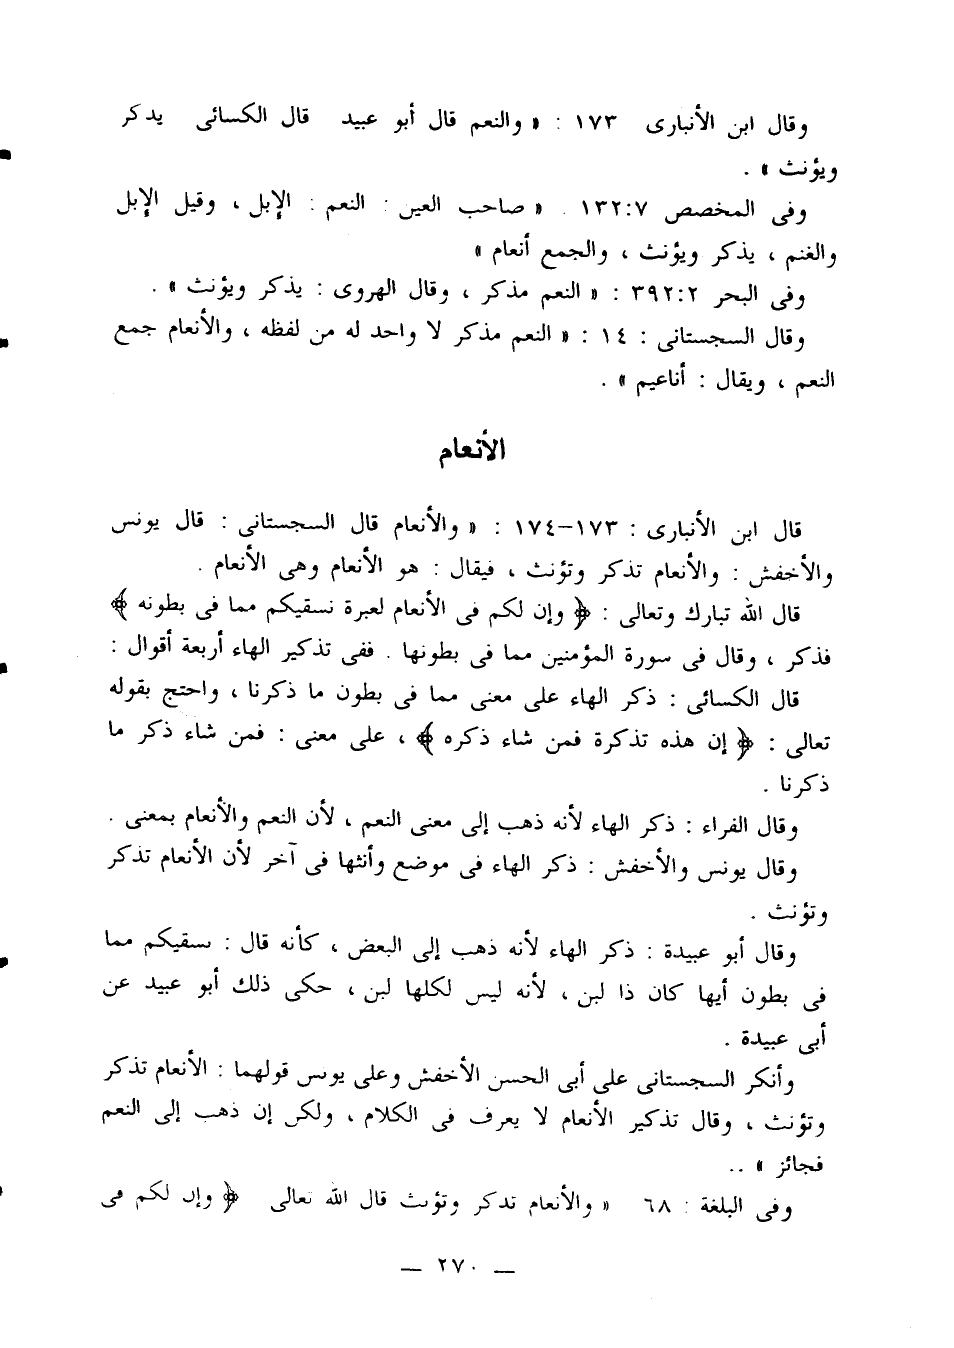 وقال ابن الأنبارى ١٧٣ : « والنعم قال أبو عبيد قال الكسائى يدكر
ويؤنث » .
وفى المخصص ١٣٢:٧ . « صاحب العين : النعم : الإبل ، وقيل الإبل
والغنم ، يذكر ويؤنث ، والجمع أنعام »
وفى البحر ٣٩٢:٢ : « النعم مذكر ، وقال الهروى : يذكر ويؤنث » .
وقال السجستانى : ١٤ : « النعم مذكر لا واحد له من لفظه ، والأنعام جمع
النعم ، ويقال : أناعيم » .
الأنعام
قال ابن الأنبارى : ١٧٣–١٧٤ : « والأنعام قال السجستانى : قال يونس
والأخفش : والأنعام تذكر وتؤنث ، فيقال : هو الأنعام وهى الأنعام .
قال الله تبارك وتعالى : ﴿ وإن لكم فى الأنعام لعبرة نسقيكم مما فى بطونه ﴾
فذكر ، وقال فى سورة المؤمنين مما فى بطونها . ففى تذكير الهاء أربعة أقوال :
قال الكسائى : ذكر الهاء على معنى مما فى بطون ما ذكرنا ، واحتج بقوله
تعالى : ﴿ إن هذه تذكرة فمن شاء ذكره ﴾ ، على معنى : فمن شاء ذكر ما
ذكرنا .
وقال الفراء : ذكر الهاء لأنه ذهب إلى معنى النعم ، لأن النعم والأنعام بمعنى .
وقال يونس والأخفش : ذكر الهاء فى موضع وأنثها فى آخر لأن الأنعام تذكر
وتؤنث .
وقال أبو عبيدة : ذكر الهاء لأنه ذهب إلى البعض ، كأنه قال : نسقيكم مما
فى بطون أيها كان ذا لبن ، لأنه ليس لكلها لبن ، حكى ذلك أبو عبيد عن
أبى عبيدة .
وأنكر السجستانى على أبى الحسن الأخفش وعلى يونس قولهما : الأنعام تذكر
وتؤنث ، وقال تذكير الأنعام لا يعرف فى الكلام ، ولكن إن ذهب إلى النعم
فجائز » ..
وفى البلغة : ٦٨ « والأنعام تدكر وتؤنث قال الله تعالى ﴿ وإن لكم فى
— ٢٧٠ —